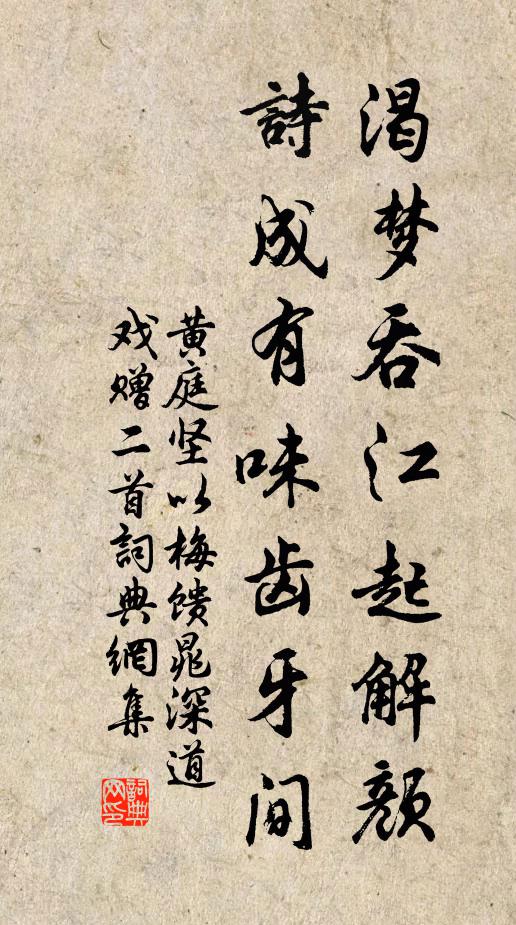 渴梦吞江起解颜
詩成有味齿牙间
黄庭坚以梅馈晁深道
戏赠二首詞典網集
詞典
网印